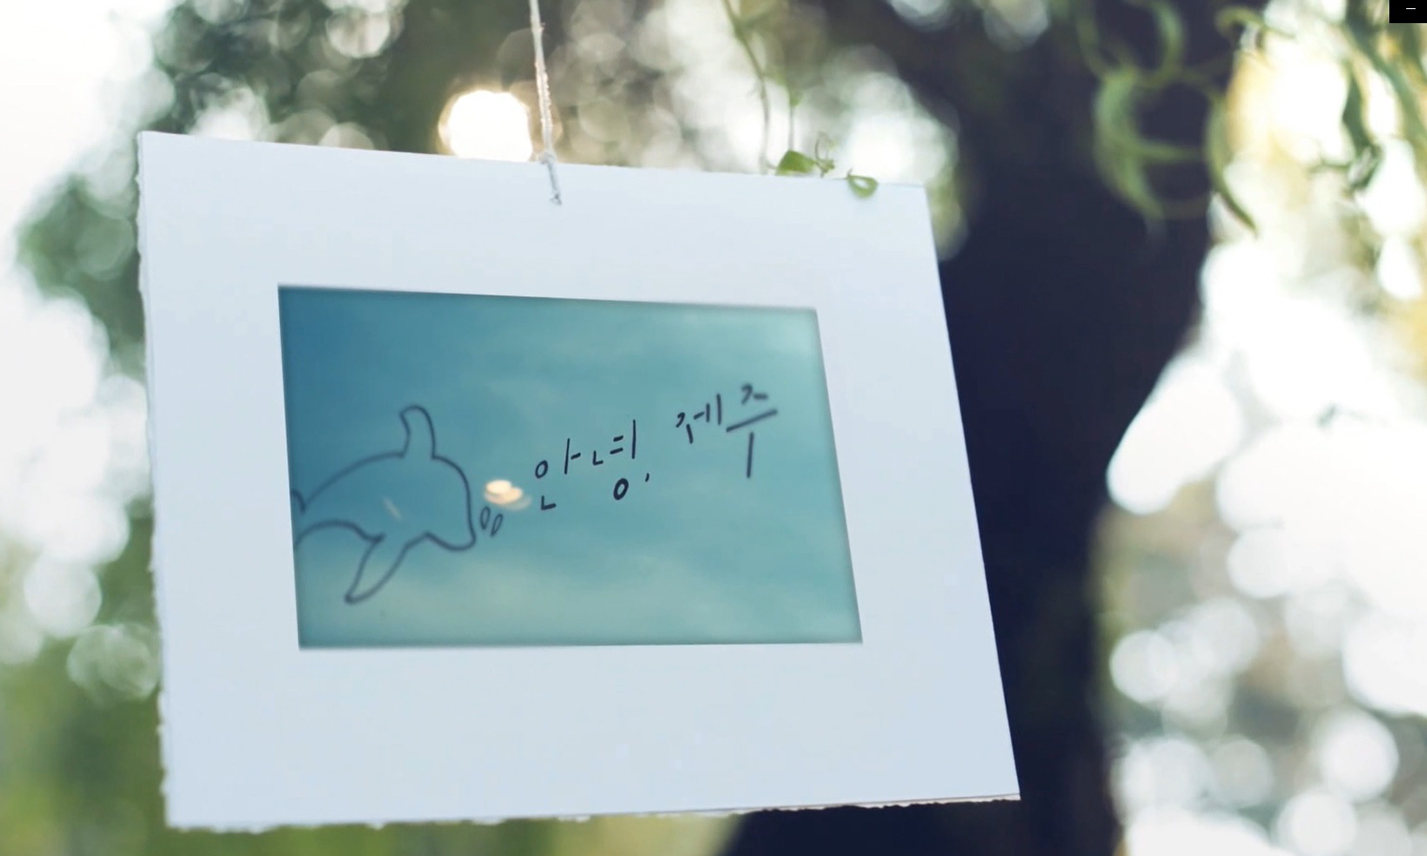 안녕, 제주